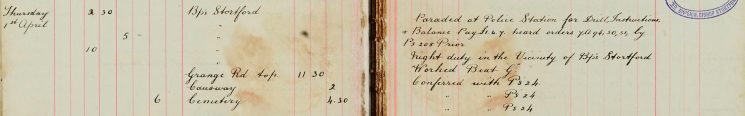 Thursday 2 30 Bp's Stortford
1st April 5 "
10 "
"
Grange Rd top 11 30
Causeway 2
6 Cemetery 4.30
Paraded at Police Station for Drill, Instructions,
+ Balance Pay heard orders by
Ps 208 Prior
Night duty in the Vicinity of Bp's Stortford
Worked Beat G
Conferred with Ps 24
" " Ps 24
" " Ps 24